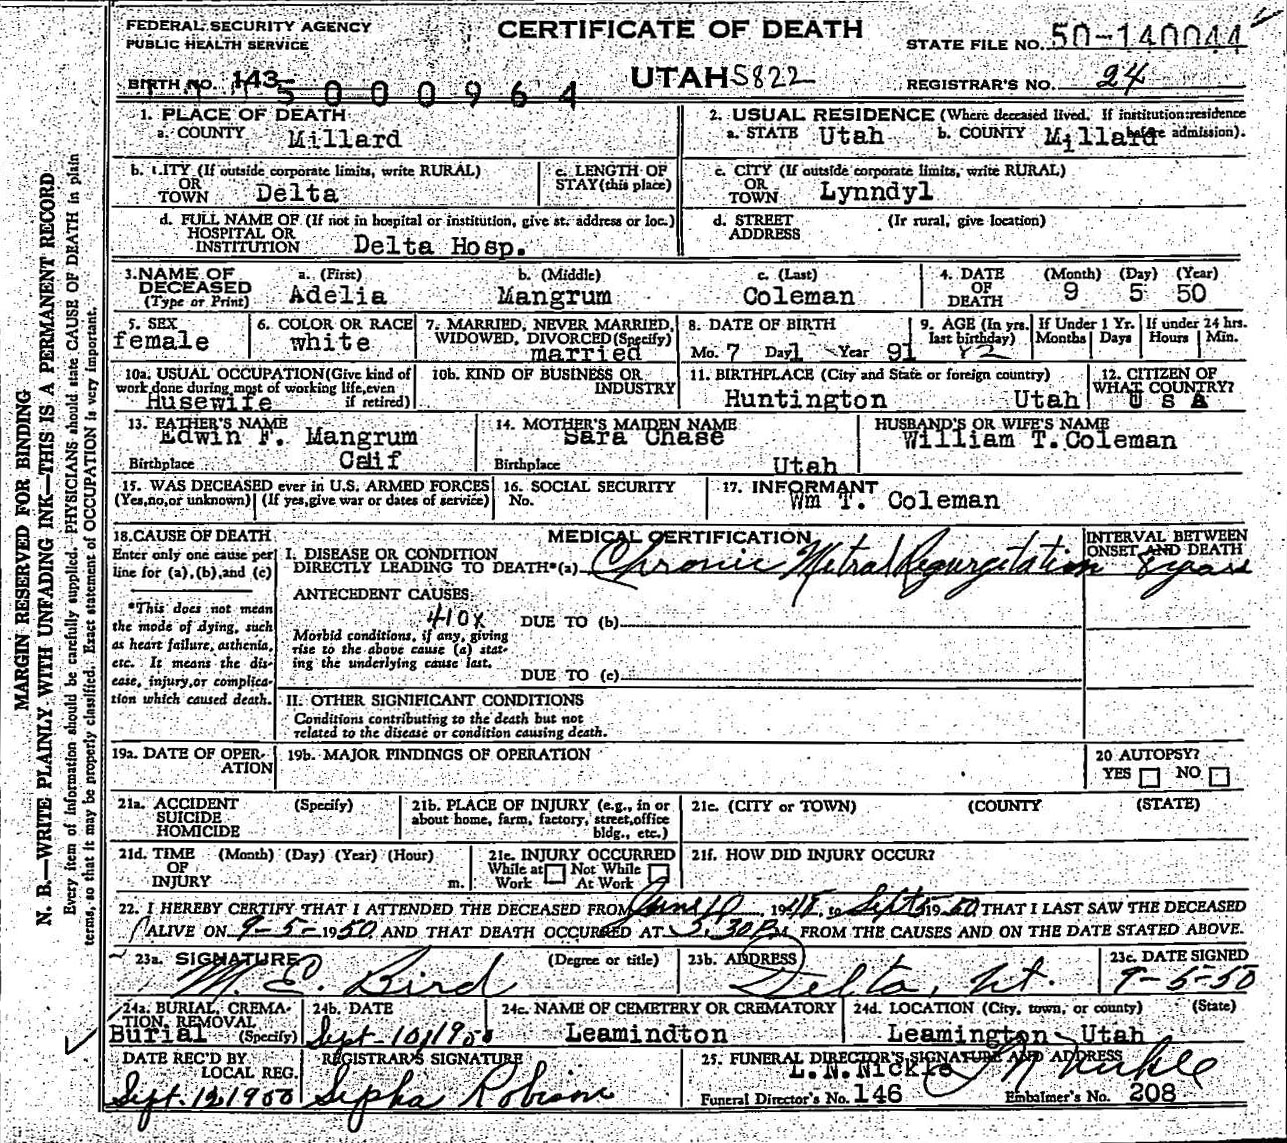 FEDERAL SECURITY AGENCY
PUBLIC HEALTH SERVICE
CERTIFICATE OF DEATH
STATE FILE NO. 50-140044
BIRTH NO. 143
5000964
UTAH 5822
REGISTRAR'S NO. 24
1. PLACE OF DEATH
a. COUNTY Millard
2. USUAL RESIDENCE (Where deceased lived. If institution: residence before admission).
a. STATE Utah b. COUNTY Millard
b. CITY (If outside corporate limits, write RURAL)
OR
TOWN Delta
c. LENGTH OF
STAY (this place)
c. CITY (If outside corporate limits, write RURAL)
OR
TOWN Lynndyl
d. FULL NAME OF (If not in hospital or institution, give st. address or loc.)
HOSPITAL OR
INSTITUTION Delta Hosp.
d. STREET (If rural, give location)
ADDRESS
3. NAME OF DECEASED
(Type or Print)
a. (First) Adelia
b. (Middle) Mangrum
c. (Last) Coleman
4. DATE OF DEATH (Month) (Day) (Year)
9 5 50
5. SEX
female
6. COLOR OR RACE
white
7. MARRIED, NEVER MARRIED,
WIDOWED, DIVORCED (Specify)
married
8. DATE OF BIRTH
Mo. 7 Day 1 Year 91
9. AGE (In yrs.
last birthday)
If Under 1 Yr.
Months Days
If under 24 hrs.
Hours Min.
10a. USUAL OCCUPATION (Give kind of
work done during most of working life, even
if retired)
Husewife
10b. KIND OF BUSINESS OR
INDUSTRY
11. BIRTHPLACE (City and State or foreign country)
Huntington Utah
12. CITIZEN OF
WHAT COUNTRY?
U S A
13. FATHER'S NAME
Edwin F. Mangrum
Birthplace Calif
14. MOTHER'S MAIDEN NAME
Sara Chase
Birthplace Utah
HUSBAND'S OR WIFE'S NAME
William T. Coleman
15. WAS DECEASED ever in U.S. ARMED FORCES
(Yes, no, or unknown) (If yes, give war or dates of service)
16. SOCIAL SECURITY
No.
17. INFORMANT
Wm T. Coleman
18. CAUSE OF DEATH
Enter only one cause per
line for (a), (b), and (c)
*This does not mean
the mode of dying, such
as heart failure, asthenia,
etc. It means the dis-
ease, injury, or complica-
tion which caused death.
MEDICAL CERTIFICATION
I. DISEASE OR CONDITION
DIRECTLY LEADING TO DEATH*(a) Chronic Metral Regurgetation
INTERVAL BETWEEN
ONSET AND DEATH
8 years
ANTECEDENT CAUSES
410X
DUE TO (b)
Morbid conditions, if any, giving
rise to the above cause (a) stat-
ing the underlying cause last.
DUE TO (c)
II. OTHER SIGNIFICANT CONDITIONS
Conditions contributing to the death but not
related to the disease or condition causing death.
19a. DATE OF OPER-
ATION
19b. MAJOR FINDINGS OF OPERATION
20 AUTOPSY?
YES NO
21a. ACCIDENT (Specify)
SUICIDE
HOMICIDE
21b. PLACE OF INJURY (e.g., in or
about home, farm, factory, street, office
bldg., etc.)
21c. (CITY or TOWN) (COUNTY) (STATE)
21d. TIME (Month) (Day) (Year) (Hour)
OF
INJURY m.
21e. INJURY OCCURRED
While at Not While
Work At Work
21f. HOW DID INJURY OCCUR?
22. I HEREBY CERTIFY THAT I ATTENDED THE DECEASED FROM June 10, 1948, to Sept 5 1950 THAT I LAST SAW THE DECEASED
ALIVE ON 9-5-1950 AND THAT DEATH OCCURED AT :30 P.M. FROM THE CAUSES AND ON THE DATE STATED ABOVE.
23a. SIGNATURE (Degree or title)
M. E. Bird
23b. ADDRESS
Delta, Ut.
23c. DATE SIGNED
9-5-50
24a. BURIAL, CREMA-
TION, REMOVAL
Burial (Specify)
24b. DATE
Sept-10, 1950
24c. NAME OF CEMETERY OR CREMATORY
Leamindton
24d. LOCATION (City, town, or county) (State)
Leamington Utah
DATE REC'D BY
LOCAL REG.
Sept. 12, 1950
REGISTRAR'S SIGNATURE
Sepha Robison
25. FUNERAL DIRECTOR'S SIGNATURE AND ADDRESS
L.N. Nickle
Funeral Director's No. 146
Embalmer's No. 208
MARGIN RESERVED FOR BINDING
N. B.—WRITE PLAINLY WITH UNFADING INK—THIS IS A PERMANENT RECORD
Every item of information should be carefully supplied. PHYSICIANS should state CAUSE OF DEATH in plain
terms, so that it may be properly classified. Exact statement of OCCUPATION is very important.